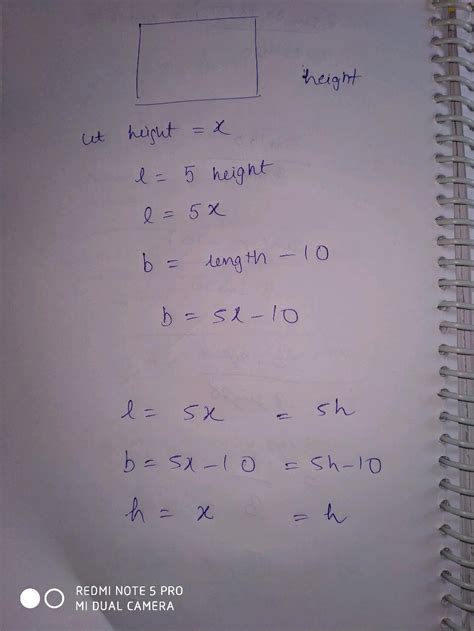 height
let height = x
l = 5 height
l = 5x
b = length - 10
b = 5x - 10
l = 5x = 5h
b = 5x - 10 = 5h - 10
h = x = h
REDMI NOTE 5 PRO
MI DUAL CAMERA